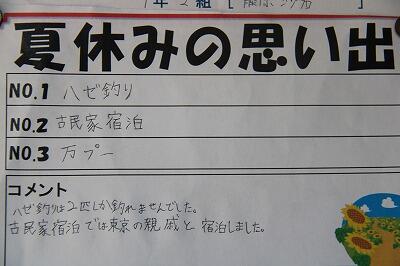 1年2組 [
夏休みの思い出
NO.1 ハゼ釣り
NO.2 古民家宿泊
NO.3 万プー
コメント
ハゼ釣りは2匹しか釣れませんでした。
古民家宿泊では東京の親戚と宿泊しました。